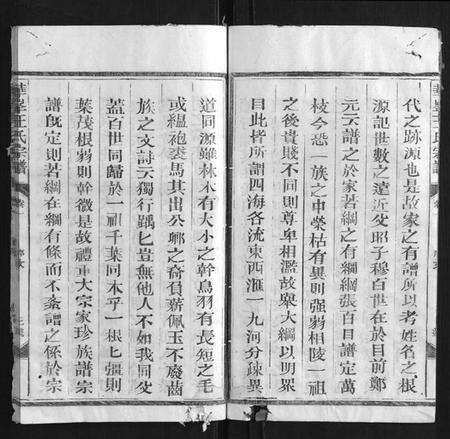 代之跡源也是故家之有譜所以考姓名之根
源記世數之遠近父昭子穆百世在於目前鄭
元云譜之於家若網之有綱綱張百目譜定萬
枝今恐一族之中榮枯有異則强弱相陵一祖
之後貴賤不同則尊卑相濫故舉大綱以明眾
目此皆所謂四海各流東西滙一九河分疎異
道同源雖林木有大小之幹鳥羽有長短之毛
或緼袍裘馬其出公卿之裔負薪佩玉不廢齒
族之文詩云獨行踽匕豈無他人不如我同父
蓋百世同歸於一祖千葉同本乎一根匕强則
葉茂根弱則幹微是故禮重大宗家珍族譜宗
譜旣定則若綱在綱有條而不紊譜之係於宗
華峯王氏宗譜